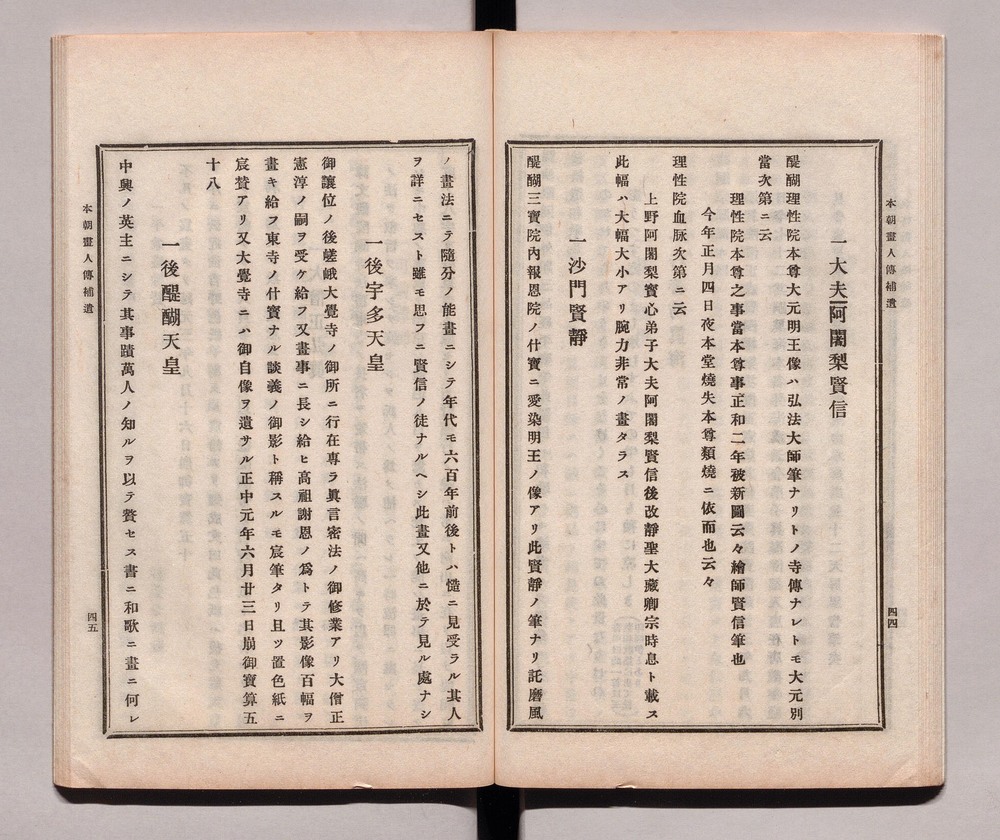 本朝畫人傳補遺
四四
一大夫阿闍梨賢信
醍醐理性院本尊大元明王像ハ弘法大師筆ナリトノ寺傳ナレトモ大元別
當次第ニ云
理性院本尊之事當本尊事正和二年被新圖云々繪師賢信筆也
今年正月四日夜本堂燒失本尊類燒ニ依而也云々
理性院血脉次第ニ云
上野阿闍梨實心弟子大夫阿闍梨賢信後改靜聖大藏卿宗時息ト載ス
此幅ハ大幅大小アリ腕力非常ノ畫タラス
一沙門賢靜
醍醐三寶院內報恩院ノ什寶ニ愛染明王ノ像アリ此賢靜ノ筆ナリ託磨風
ノ畫法ニテ隨分ノ能畫ニシテ年代モ六百年前後トハ慥ニ見受ラル其人
ヲ詳ニセスト雖モ思フニ賢信ノ徒ナルヘシ此畫又他ニ於テ見ル處ナシ
一後宇多天皇
御讓位ノ後嵯峨大覺寺ノ御所ニ行在専ラ眞言密法ノ御修業アリ大僧正
憲淳ノ嗣ヲ受ケ給フ又畫事ニ長シ給ヒ高祖謝恩ノ爲トテ其影像百幅ヲ
畫キ給フ東寺ノ什寶ナル談義ノ御影ト稱スルモ宸筆タリ且ツ置色紙ニ
宸賛アリ又大覺寺ニハ御自像ヲ遺サル正中元年六月廿三日崩御寶算五
十八
一後醍醐天皇
中興ノ英主ニシテ其事蹟萬人ノ知ルヲ以テ贅セス書ニ和歌ニ畫ニ何レ
本朝畫人傳補遺
四五